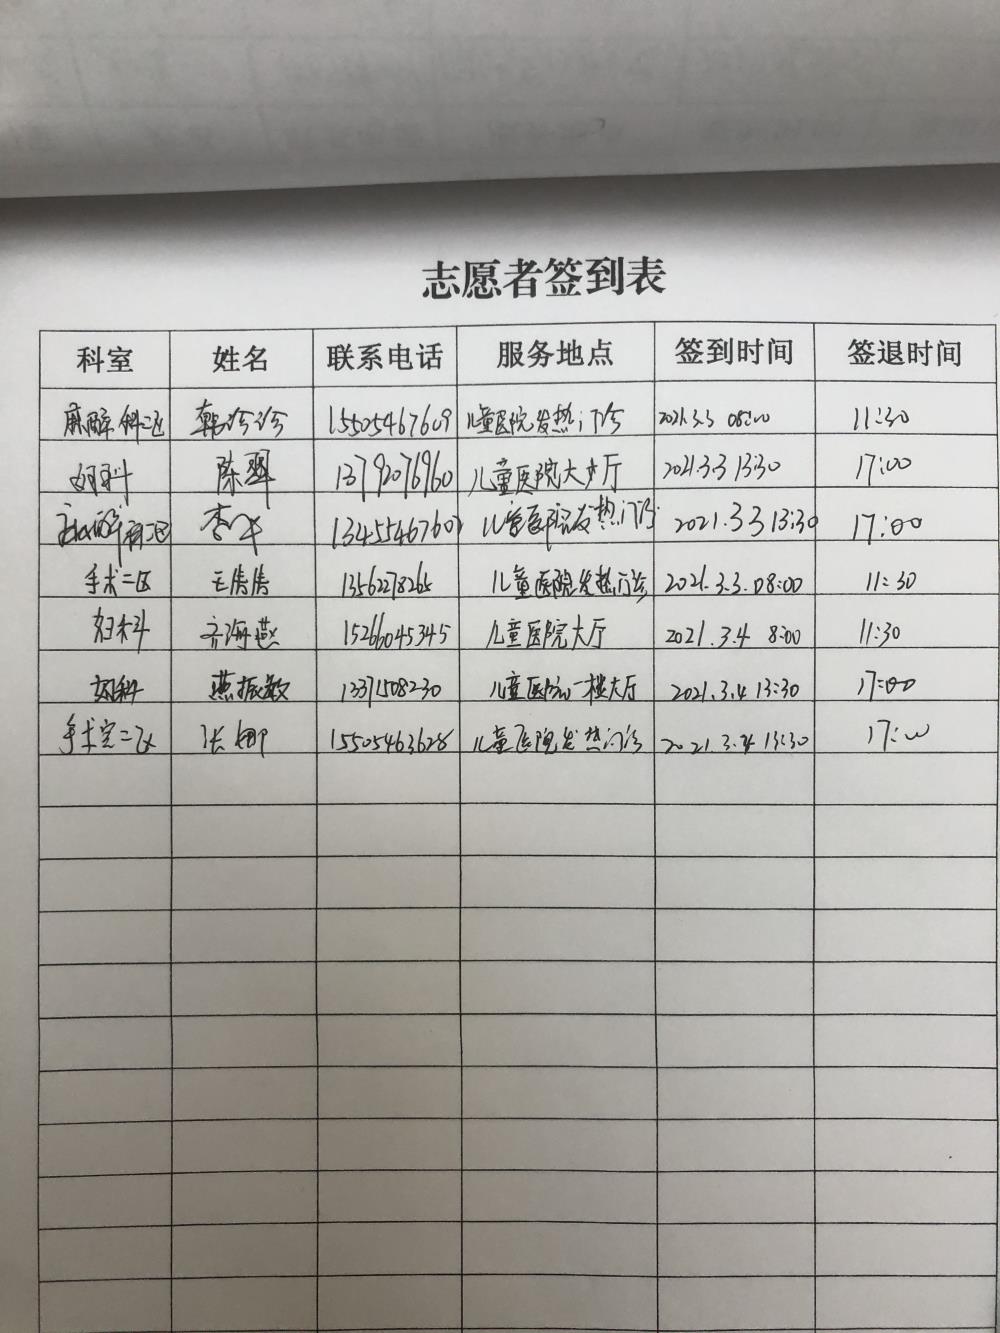 志愿者签到表
科室 姓名 联系电话 服务地点 签到时间 签退时间
麻醉科二区 韩诊诊 15505467609 儿童医院发热门诊 2021.3.3 08:00 11:30
妇科 陈翠 13792076960 儿童医院大厅 2021.3.3 13:30 17:00
麻醉科二区 李 儿童医院发热门诊 2021.3.3 13:30 17:00
手术二区 王倩倩 13562278265 儿童医院发热门诊 2021.3.3. 08:00 11:30
妇科 齐海燕 15266045345 儿童医院大厅 2021.3.4 8:00 11:30
妇科 燕振敏 13371508230 儿童医院一楼大厅 2021.3.4 13:30 17:00
手术室二区 张娜 15505463628 儿童医院发热门诊 2021.3.4 13:30 17:00